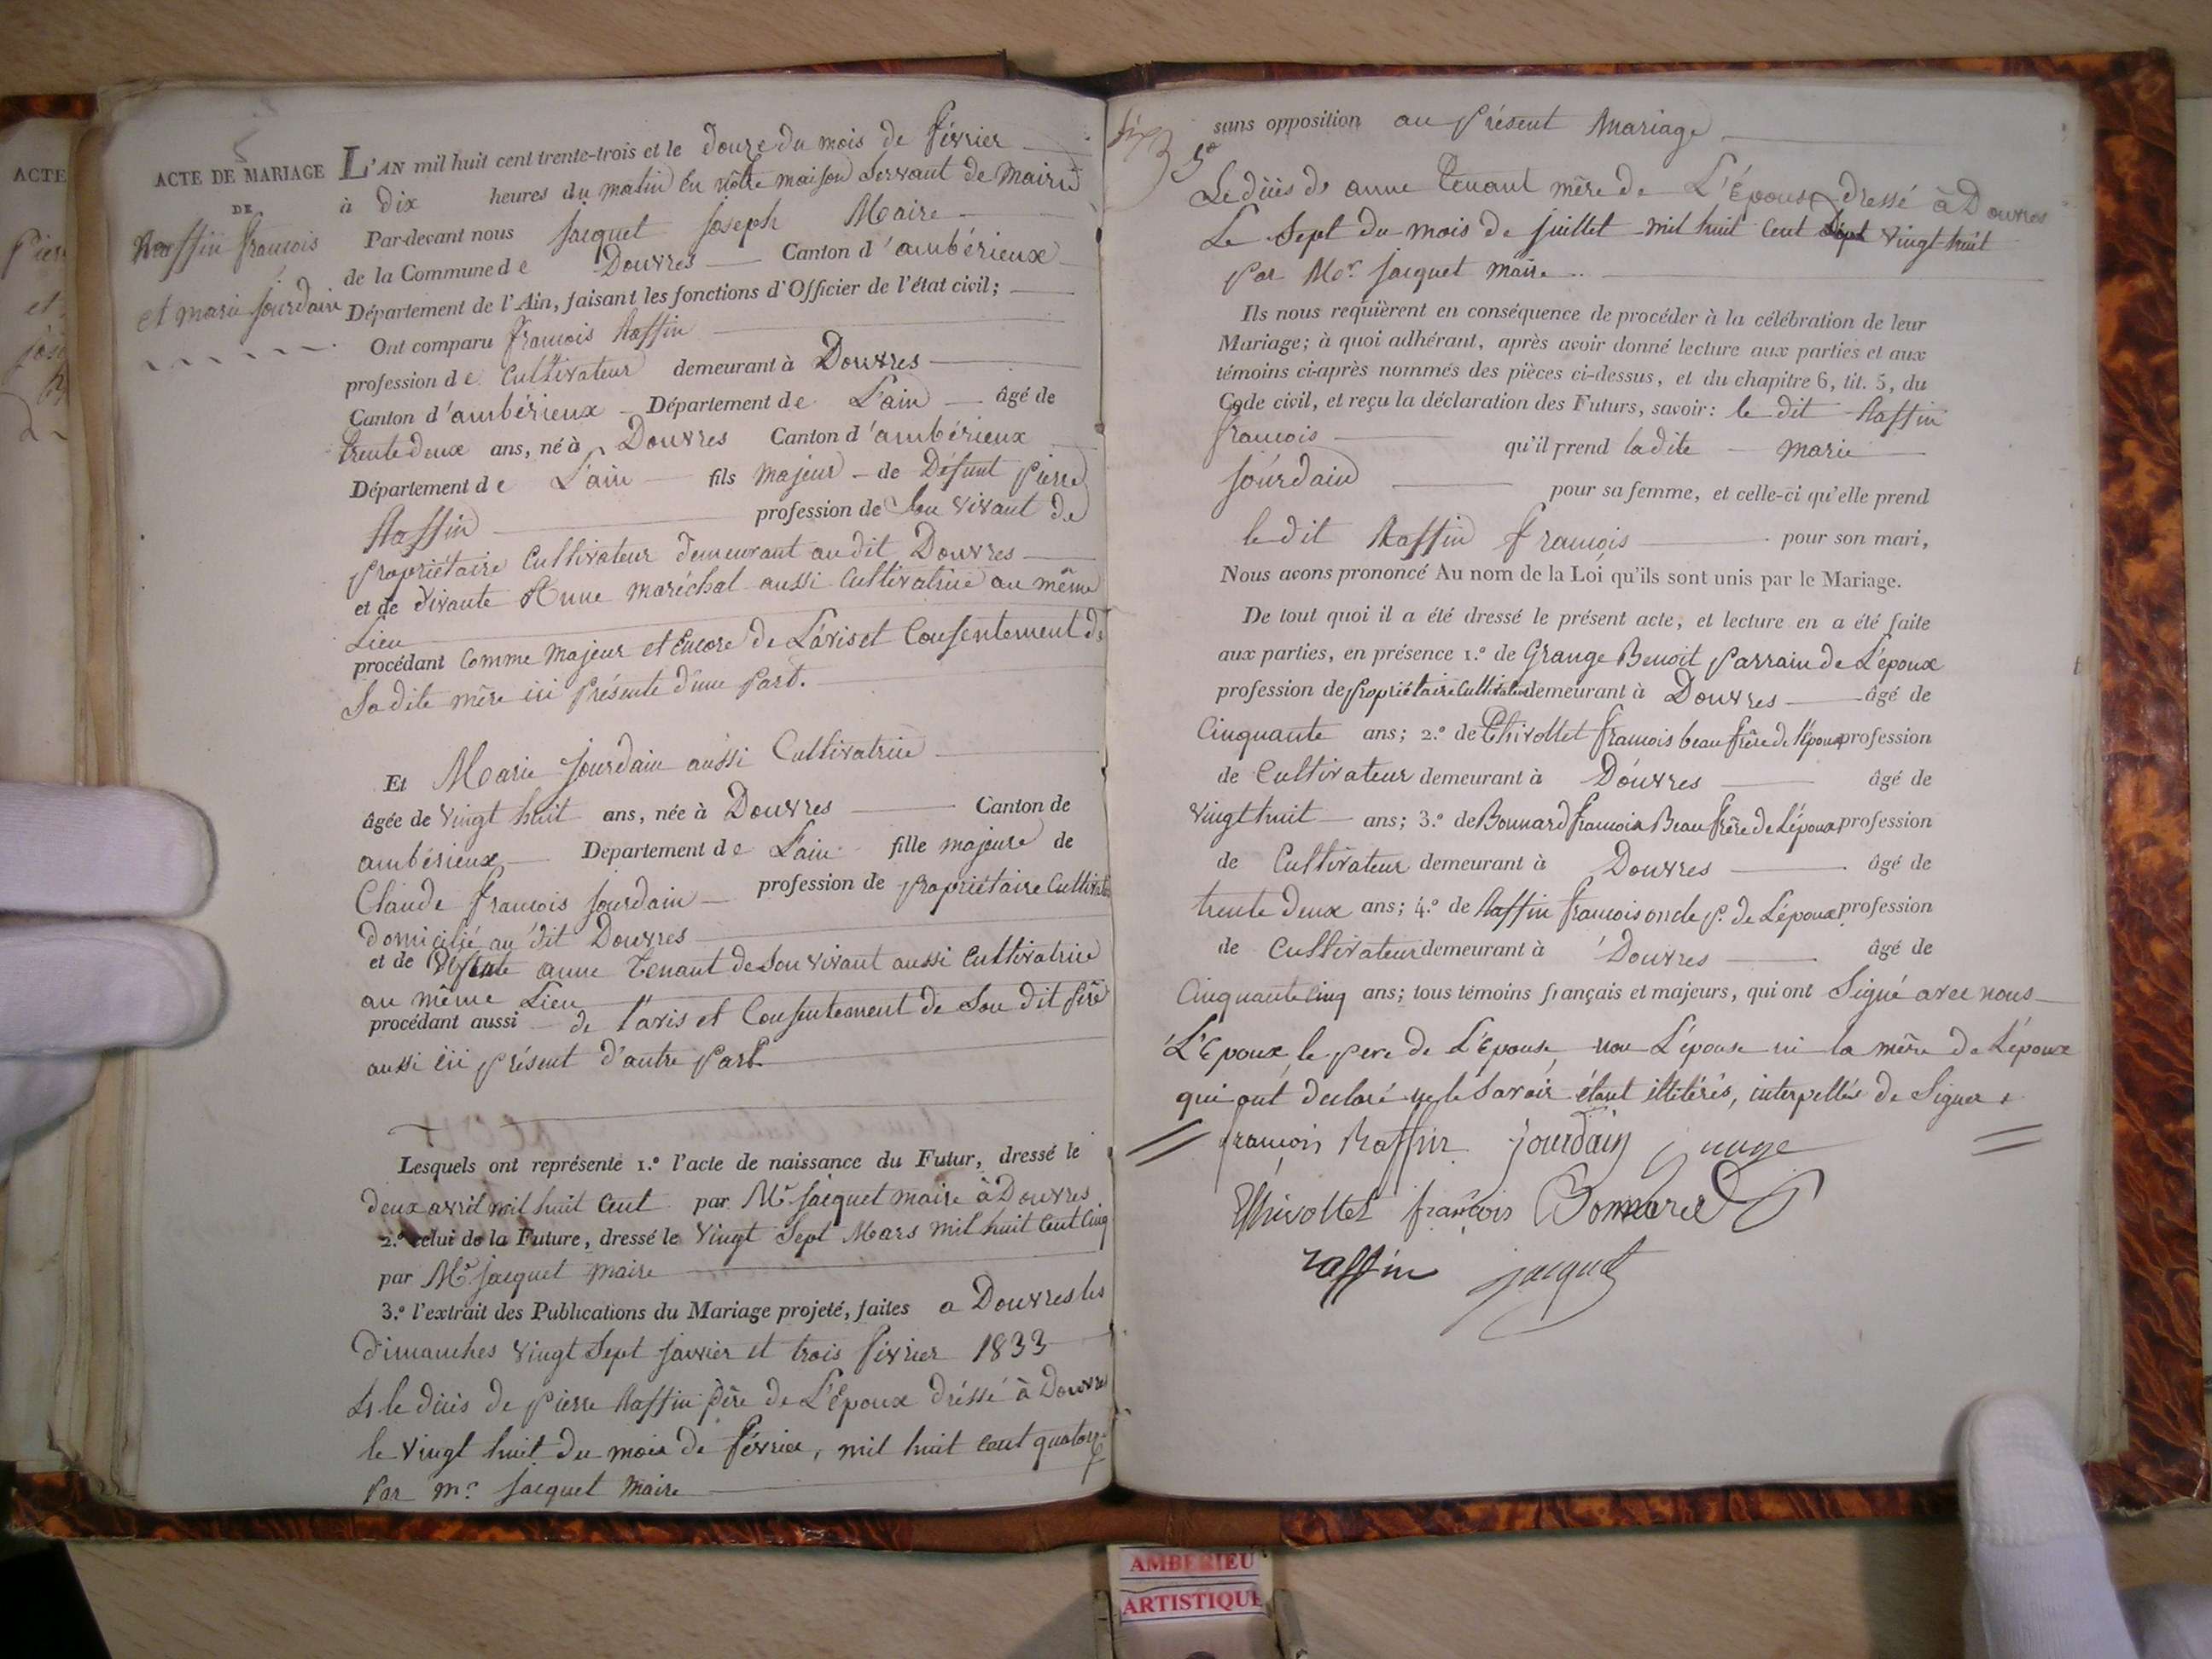 5
ACTE DE MARIAGE
DE
Raffin françois
et marie Jourdain
L'AN mil huit cent trente-trois et le douze du mois de février
à dix heures du matin en nôtre maison servant de mairie
Par-devant nous Jacquet Joseph Maire
de la Commune de Douvres Canton d'ambérieux
Département de l'Ain, faisant les fonctions d'Officier de l'état civil;
Ont comparu françois Raffin
profession de Cultivateur demeurant à Douvres
Canton d'ambérieux Département de L'ain âgé de
trente deux ans, né à Douvres Canton d'ambérieux
Département de L'ain fils majeur de Défunt pierre
Raffin profession de Son vivant de
propriétaire Cultivateur demeurant au dit Douvres
et de vivante Anne maréchal aussi Cultivatrice au même
Lieu
procédant Comme majeur et Encore de L'avis et Consentement de
Sa dite mère ici présente d'une part.
Et Marie Jourdain aussi Cultivatrice
âgée de vingt huit ans, née à Douvres Canton de
ambérieux Département de L'ain fille majeure de
Claude françois Jourdain profession de propriétaire Cultivat
domicilié au dit Douvres
et de Défunte anne Tenant de Son vivant aussi Cultivatrice
au même Lieu
procédant aussi de l'avis et Consentement de Son dit père
aussi ici présent d'autre part.
Lesquels ont représenté 1.º l'acte de naissance du Futur, dressé le
deux avril mil huit Cent par Mr Jacquet maire à Douvres
2.º celui de la Future, dressé le Vingt Sept Mars mil huit Cent Cinq
par Mr Jacquet maire
3.º l'extrait des Publications du Mariage projeté, faites a Douvres les
Dimanches vingt Sept Janvier et trois février 1833
4º le décès de pierre Raffin père de L'Epoux dréssé à Douvres
le vingt huit du mois de février, mil huit cent quatorze
par mr Jacquet maire
sans opposition au présent Mariage
5º
Le décès de anne Tenant mère de L'Épouse dressé à Douvres
Le Sept du mois de Juillet mil huit Cent vingt huit
par Mr Jacquet maire
Ils nous requièrent en conséquence de procéder à la célébration de leur
Mariage; à quoi adhérant, après avoir donné lecture aux parties et aux
témoins ci-après nommés des pièces ci-dessus, et du chapitre 6, tit. 5, du
Code civil, et reçu la déclaration des Futurs, savoir: le dit Raffin
françois qu'il prend la dite marie
Jourdain pour sa femme, et celle-ci qu'elle prend
le dit Raffin françois pour son mari,
Nous avons prononcé Au nom de la Loi qu'ils sont unis par le Mariage.
De tout quoi il a été dressé le présent acte, et lecture en a été faite
aux parties, en présence 1.º de Grange Benoit parrain de L'époux
profession de propriétaire Cultivateur demeurant à Douvres âgé de
Cinquante ans; 2.º de Thivollet françois beau frère de l'époux profession
de Cultivateur demeurant à Douvres âgé de
vingt huit ans; 3.º de Bonnard françois Beau frère de L'époux profession
de Cultivateur demeurant à Douvres âgé de
trente deux ans; 4.º de Raffin françois oncle p. de L'époux profession
de Cultivateur demeurant à Douvres âgé de
Cinquante Cinq ans; tous témoins français et majeurs, qui ont Signé avec nous
L'Epoux, le père de L'Epouse, non L'épouse ni la mère de L'époux
qui ont déclaré ne le Savoir étant illitérés, interpellés de Signer.
françois Raffin Jourdain
Thivollet françois Bonnard
raffin Jacquet
ACTE
AMBERIEU
ARTISTIQUE